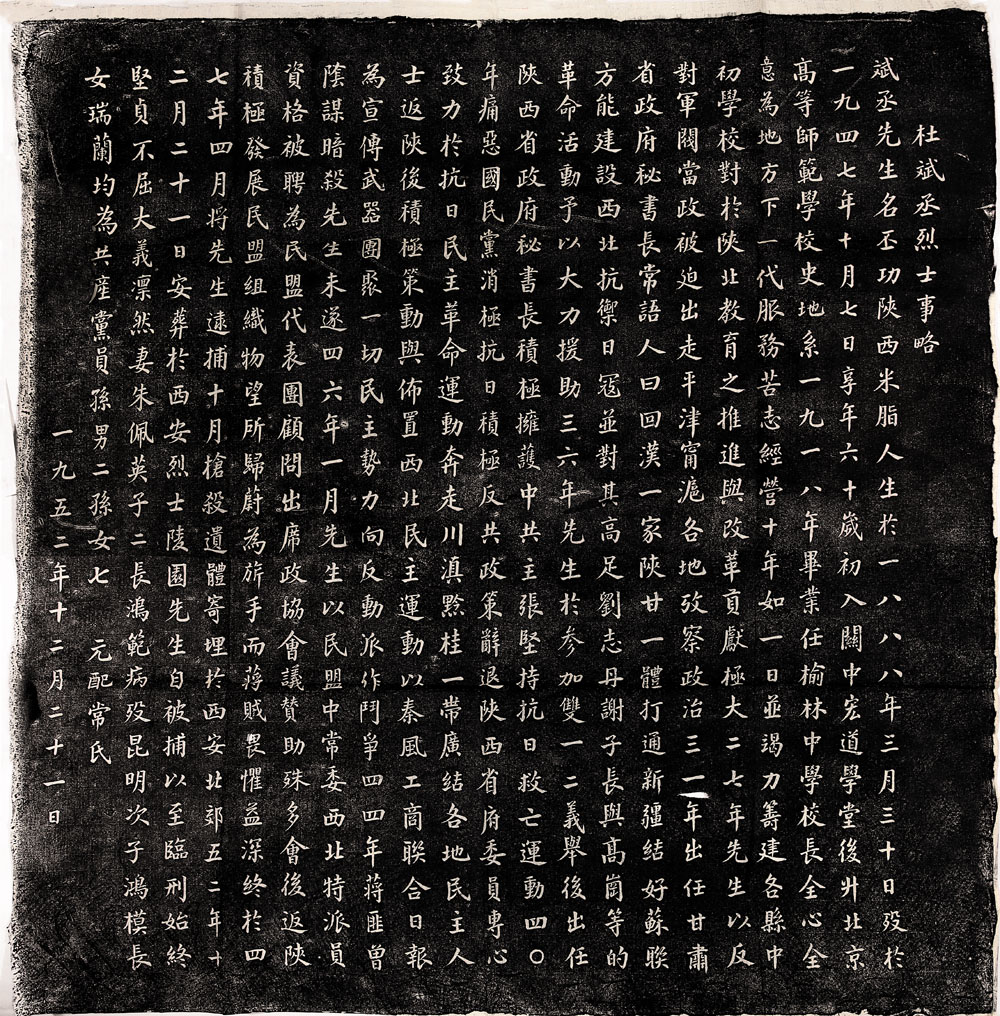 杜斌丞烈士事略
斌丞先生名丕功陝西米脂人生於一八八八年三月三十日歿於
一九四七年十月七日享年六十歲初入關中宏道學堂後升北京
高等師範學校史地系一九一八年畢業任榆林中學校長全心全
意為地方下一代服務苦志經營十年如一日並竭力籌建各縣中
初學校對於陝北教育之推進與改革貢獻極大二七年先生以反
對軍閥當政被迫出走平津甯滬各地攷察政治三一年出任甘肅
省政府秘書長常語人曰回漢一家陝甘一體打通新疆結好蘇聯
方能建設西北抗禦日寇並對其高足劉志丹謝子長與高崗等的
革命活動予以大力援助三六年先生於参加雙一二義舉後出任
陝西省政府秘書長積極擁護中共主張堅持抗日救亡運動四〇
年痛惡國民黨消極抗日積極反共政策辭退陝西省府委員專心
致力於抗日民主革命運動奔走川滇黔桂一帶廣结各地民主人
士返陝後積極策動與佈置西北民主運動以秦風工商聯合日報
為宣傳武器團聚一切民主勢力向反動派作鬥爭四四年蒋匪曾
陰謀暗殺先生未遂四六年一月先生以民盟中常委西北特派員
資格被聘為民盟代表團顧問出席政協會議贊助殊多會後返陝
積極發展民盟組織物望所歸蔚為旂手而蔣賊畏懼益深終於四
七年四月将先生逮捕十月槍殺遺體寄埋於西安北郊五二年十
二月二十一日安葬於西安烈士陵園先生自被捕以至臨刑始終
堅貞不屈大義凛然妻朱佩英子二長鴻範病歿昆明次子鴻模長
女瑞蘭均為共產黨員孫男二孫女七 元配常氏
一九五二年十二月二十一日